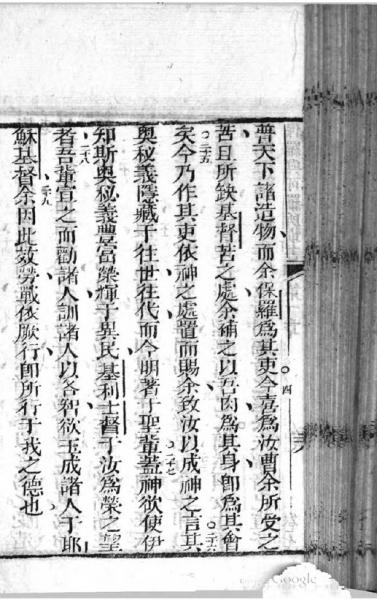 普天下諸造物而余保羅爲其吏四今喜爲汝曹余所受之
苦且所缺基督苦之處余補之以吾肉爲其身卽爲其會
矣二十五今乃作其吏依神之處置而賜余致汝以成神之言二十六其
奧秘義隱藏于往世往代而今明著于聖輩二十七蓋神欲使伊
知斯奧秘義豐富榮輝于異民基利士督于汝爲榮之望
者二十八吾輩宣之而勸諸人訓諸人以各智欲玉成諸人于耶
穌基督二十九余因此效勞戰依厥行卽所行于我之德也
Google